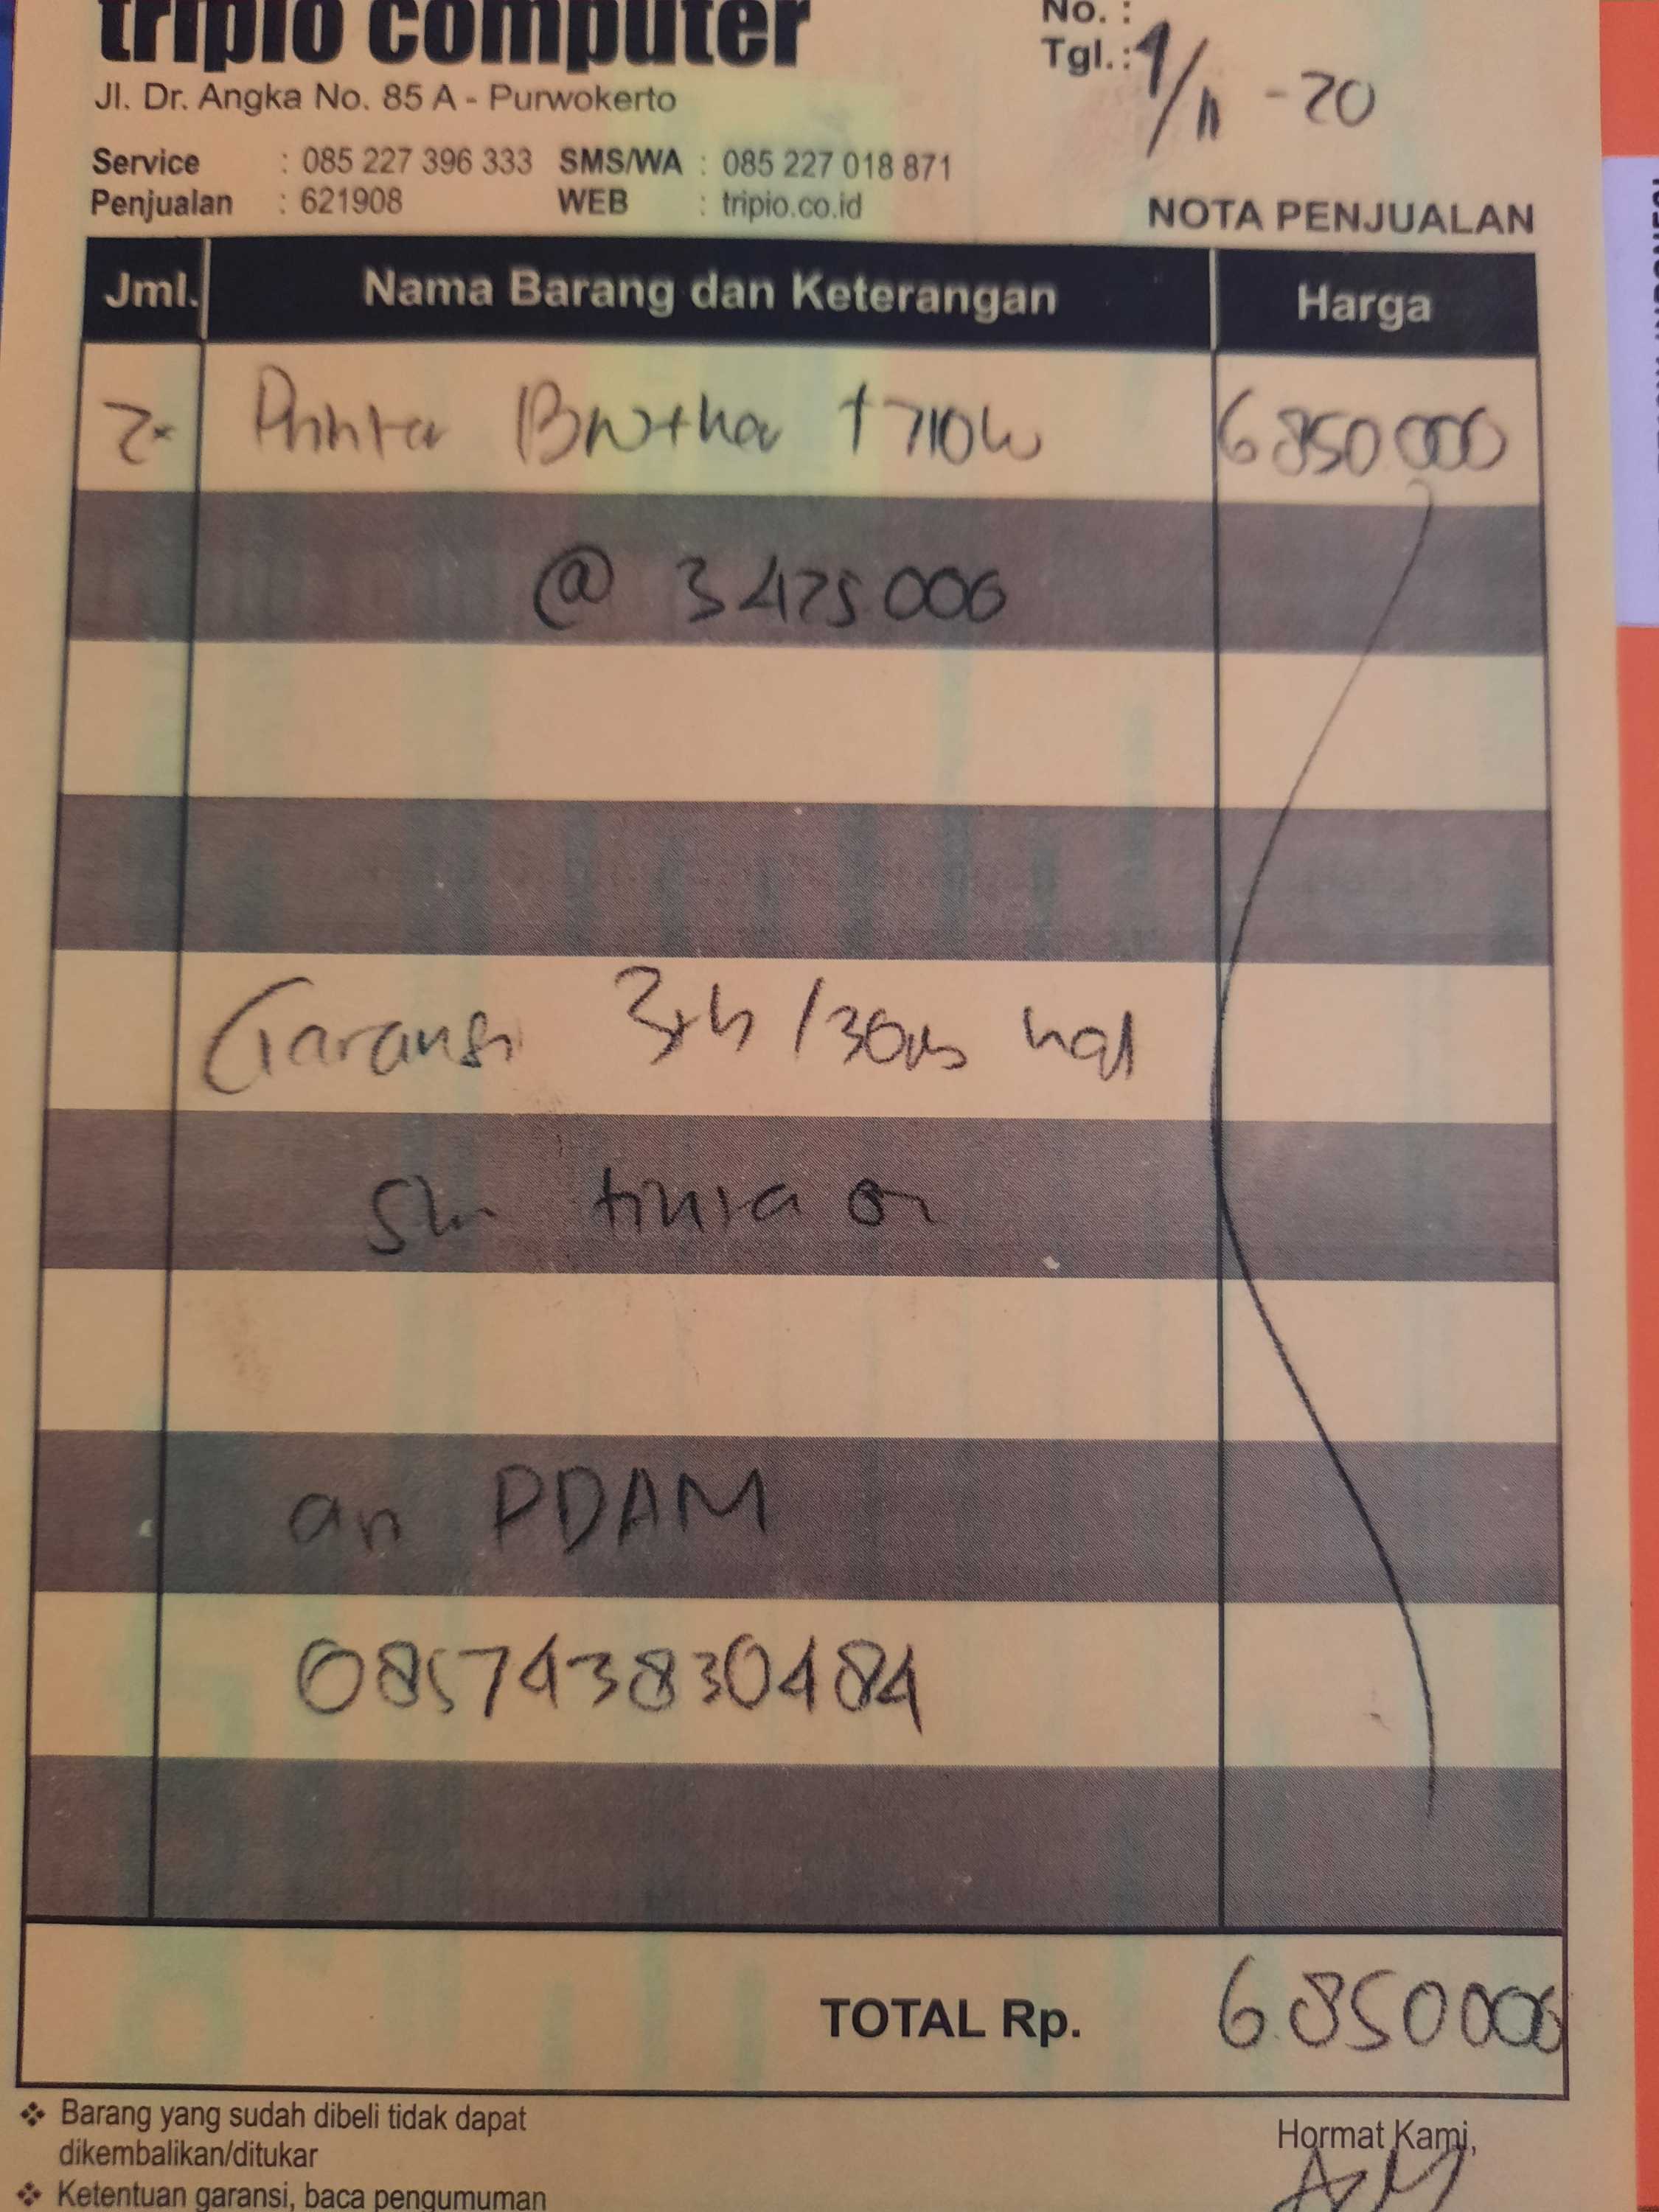 tripio computer
No. :
Tgl. : 9/11 - 20
Jl. Dr. Angka No. 85 A - Purwokerto
Service : 085 227 396 333 SMS/WA : 085 227 018 871
Penjualan : 621908 WEB : tripio.co.id
NOTA PENJUALAN
Jml. Nama Barang dan Keterangan Harga
2x Printer Brother t710w 6850000
@ 3425000
Garansi 3th /30rb hal
tinta ori
an PDAM
085743830484
TOTAL Rp. 6850000
❖ Barang yang sudah dibeli tidak dapat
dikembalikan/ditukar
❖ Ketentuan garansi, baca pengumuman
Hormat Kami,